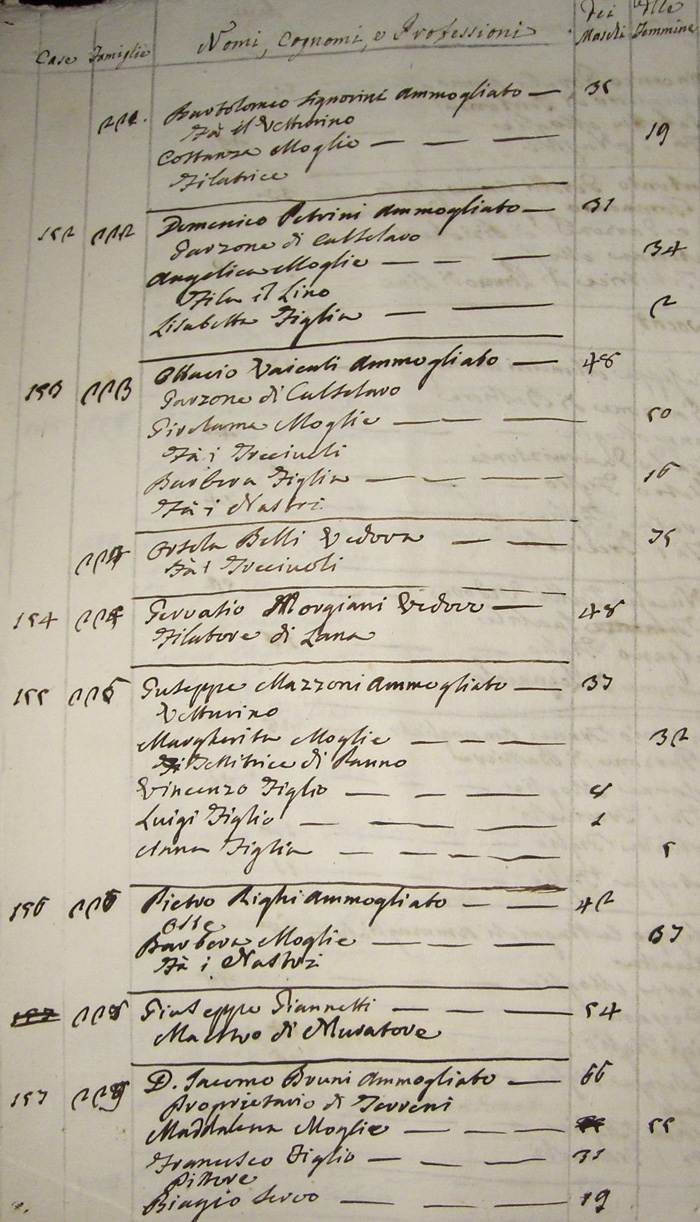 Case Famiglie Nomi, Cognomi, e Professioni Dei Maschi Delle Femmine
Bartolomeo Signorini Ammogliato — 35
Fà il Vetturino
Costanza Moglie — — — 19
Filatrice
152 222 Domenico Petrini Ammogliato — 31
Garzone di Caltelaro
Angelica Moglie — — — 34
Fila il Lino
Lisabetta Figlia — — 2
153 223 Ammogliato — 48
Garzone di Caltelaro
Girolama Moglie — — — 50
Fà i Trecciuoli
Barbera Figlia — — — 16
Fà i Nastri
224 Orsola Belli Vedova — — 75
Fà i Trecciuoli
154 Gervasio Morgiani Vedovo — 48
Filatore di Lana
155 226 Giuseppe Mazzoni Ammogliato — 37
Vetturino
Margherita Moglie — — — 32
Tessitrice di Panno
Vincenzo Figlio — — — 8
Luigi Figlio — — — 1
Anna Figlia — — — — 5
156 Pietro Righi Ammogliato — — 42
Oste
Barbera Moglie — — — 37
Fà i Nastri
228 Giuseppe Giannetti — — — 54
Mastro di Muratore
157 229 D. Giacomo Bruni Ammogliato — — 66
Proprietario di Terreni
Maddalena Moglie — — — 55
Francesco Figlio — — — 31
Pittore
Biagio Servo — — — 19